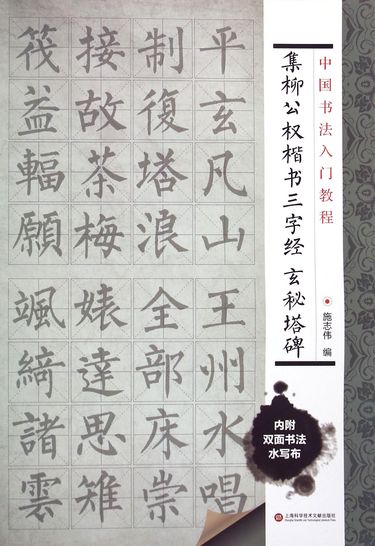 中国书法入门教程
集柳公权楷书三字经 玄秘塔碑
施志伟 编
平玄凡山
制復塔浪
接故茶梅
筏益輻願
王州水唱
全部床崇
婊達思雉
颯綺諸雲
内附
双面书法
水写布
上海科学技术文献出版社